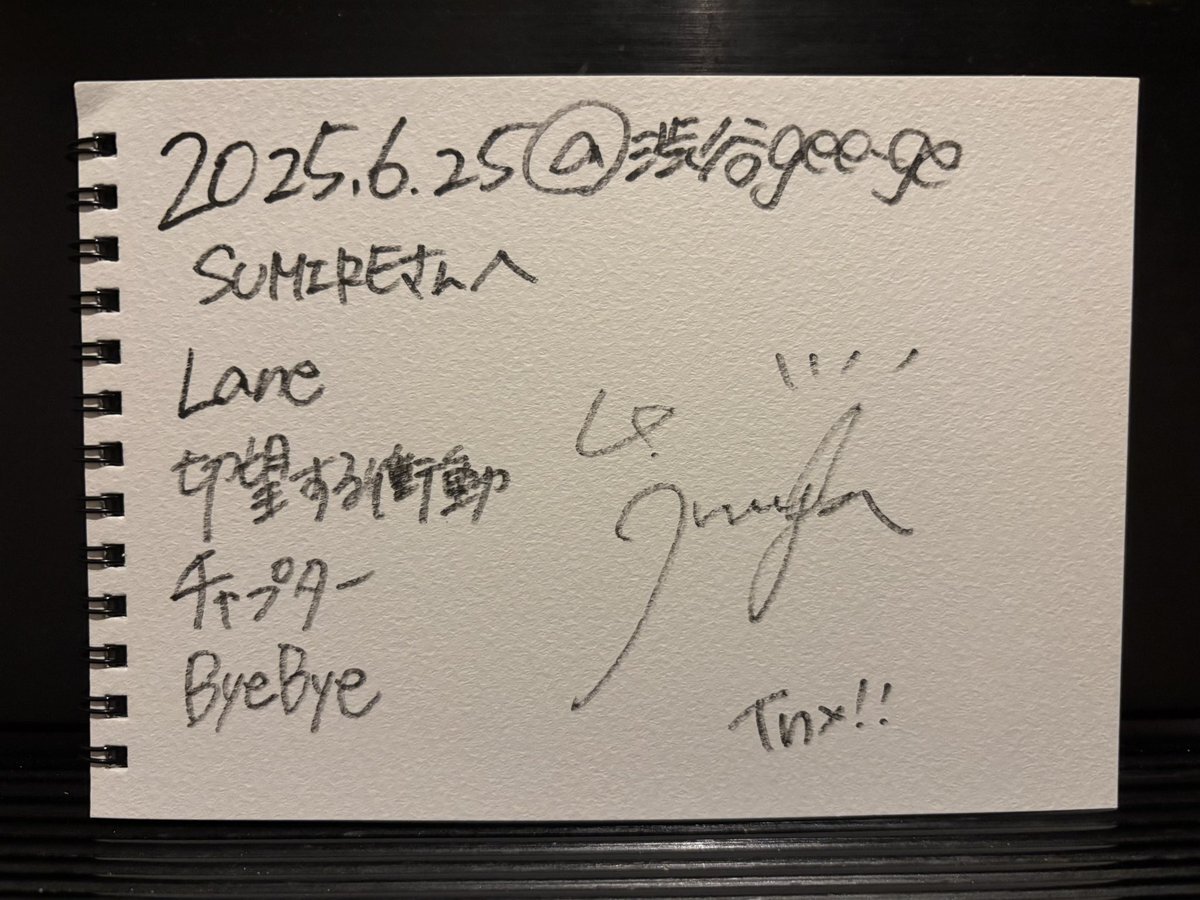 2025.6.25@渋谷gee-ge
SUMIREさんへ
Lane
切望する衝動
チャプター
ByeBye
Tnx!!